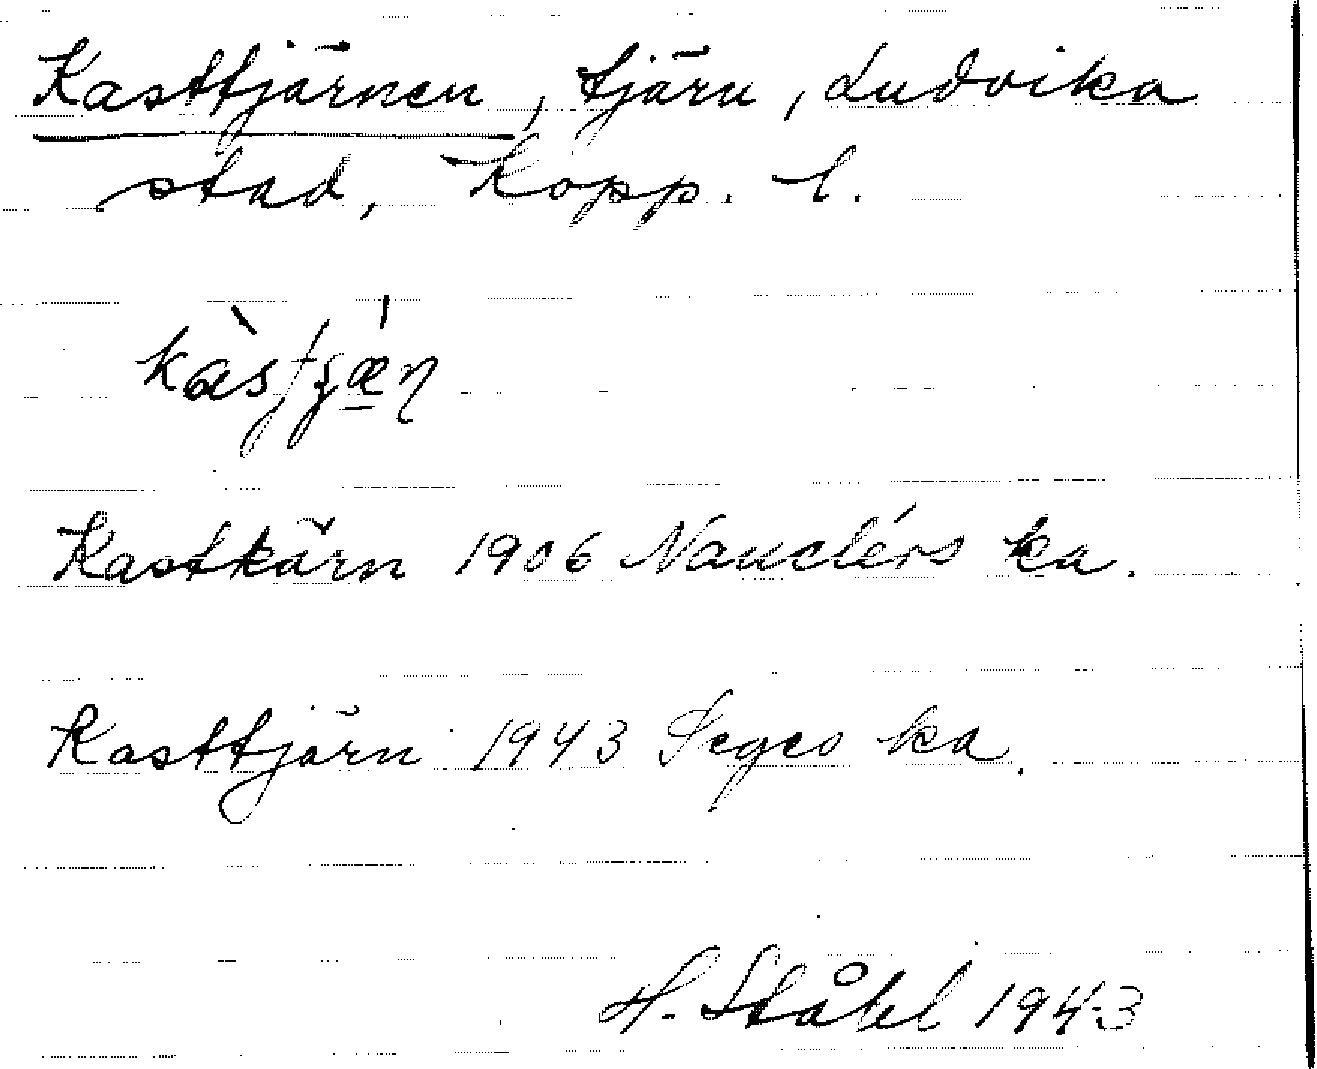 Kasttjärnen, tjärn, Ludvika
stad, Kopp. l.
Kastkärn 1906 Nauclérs ka.
Kasttjärn 1943 Segeo ka.
H. Ståhl 1943